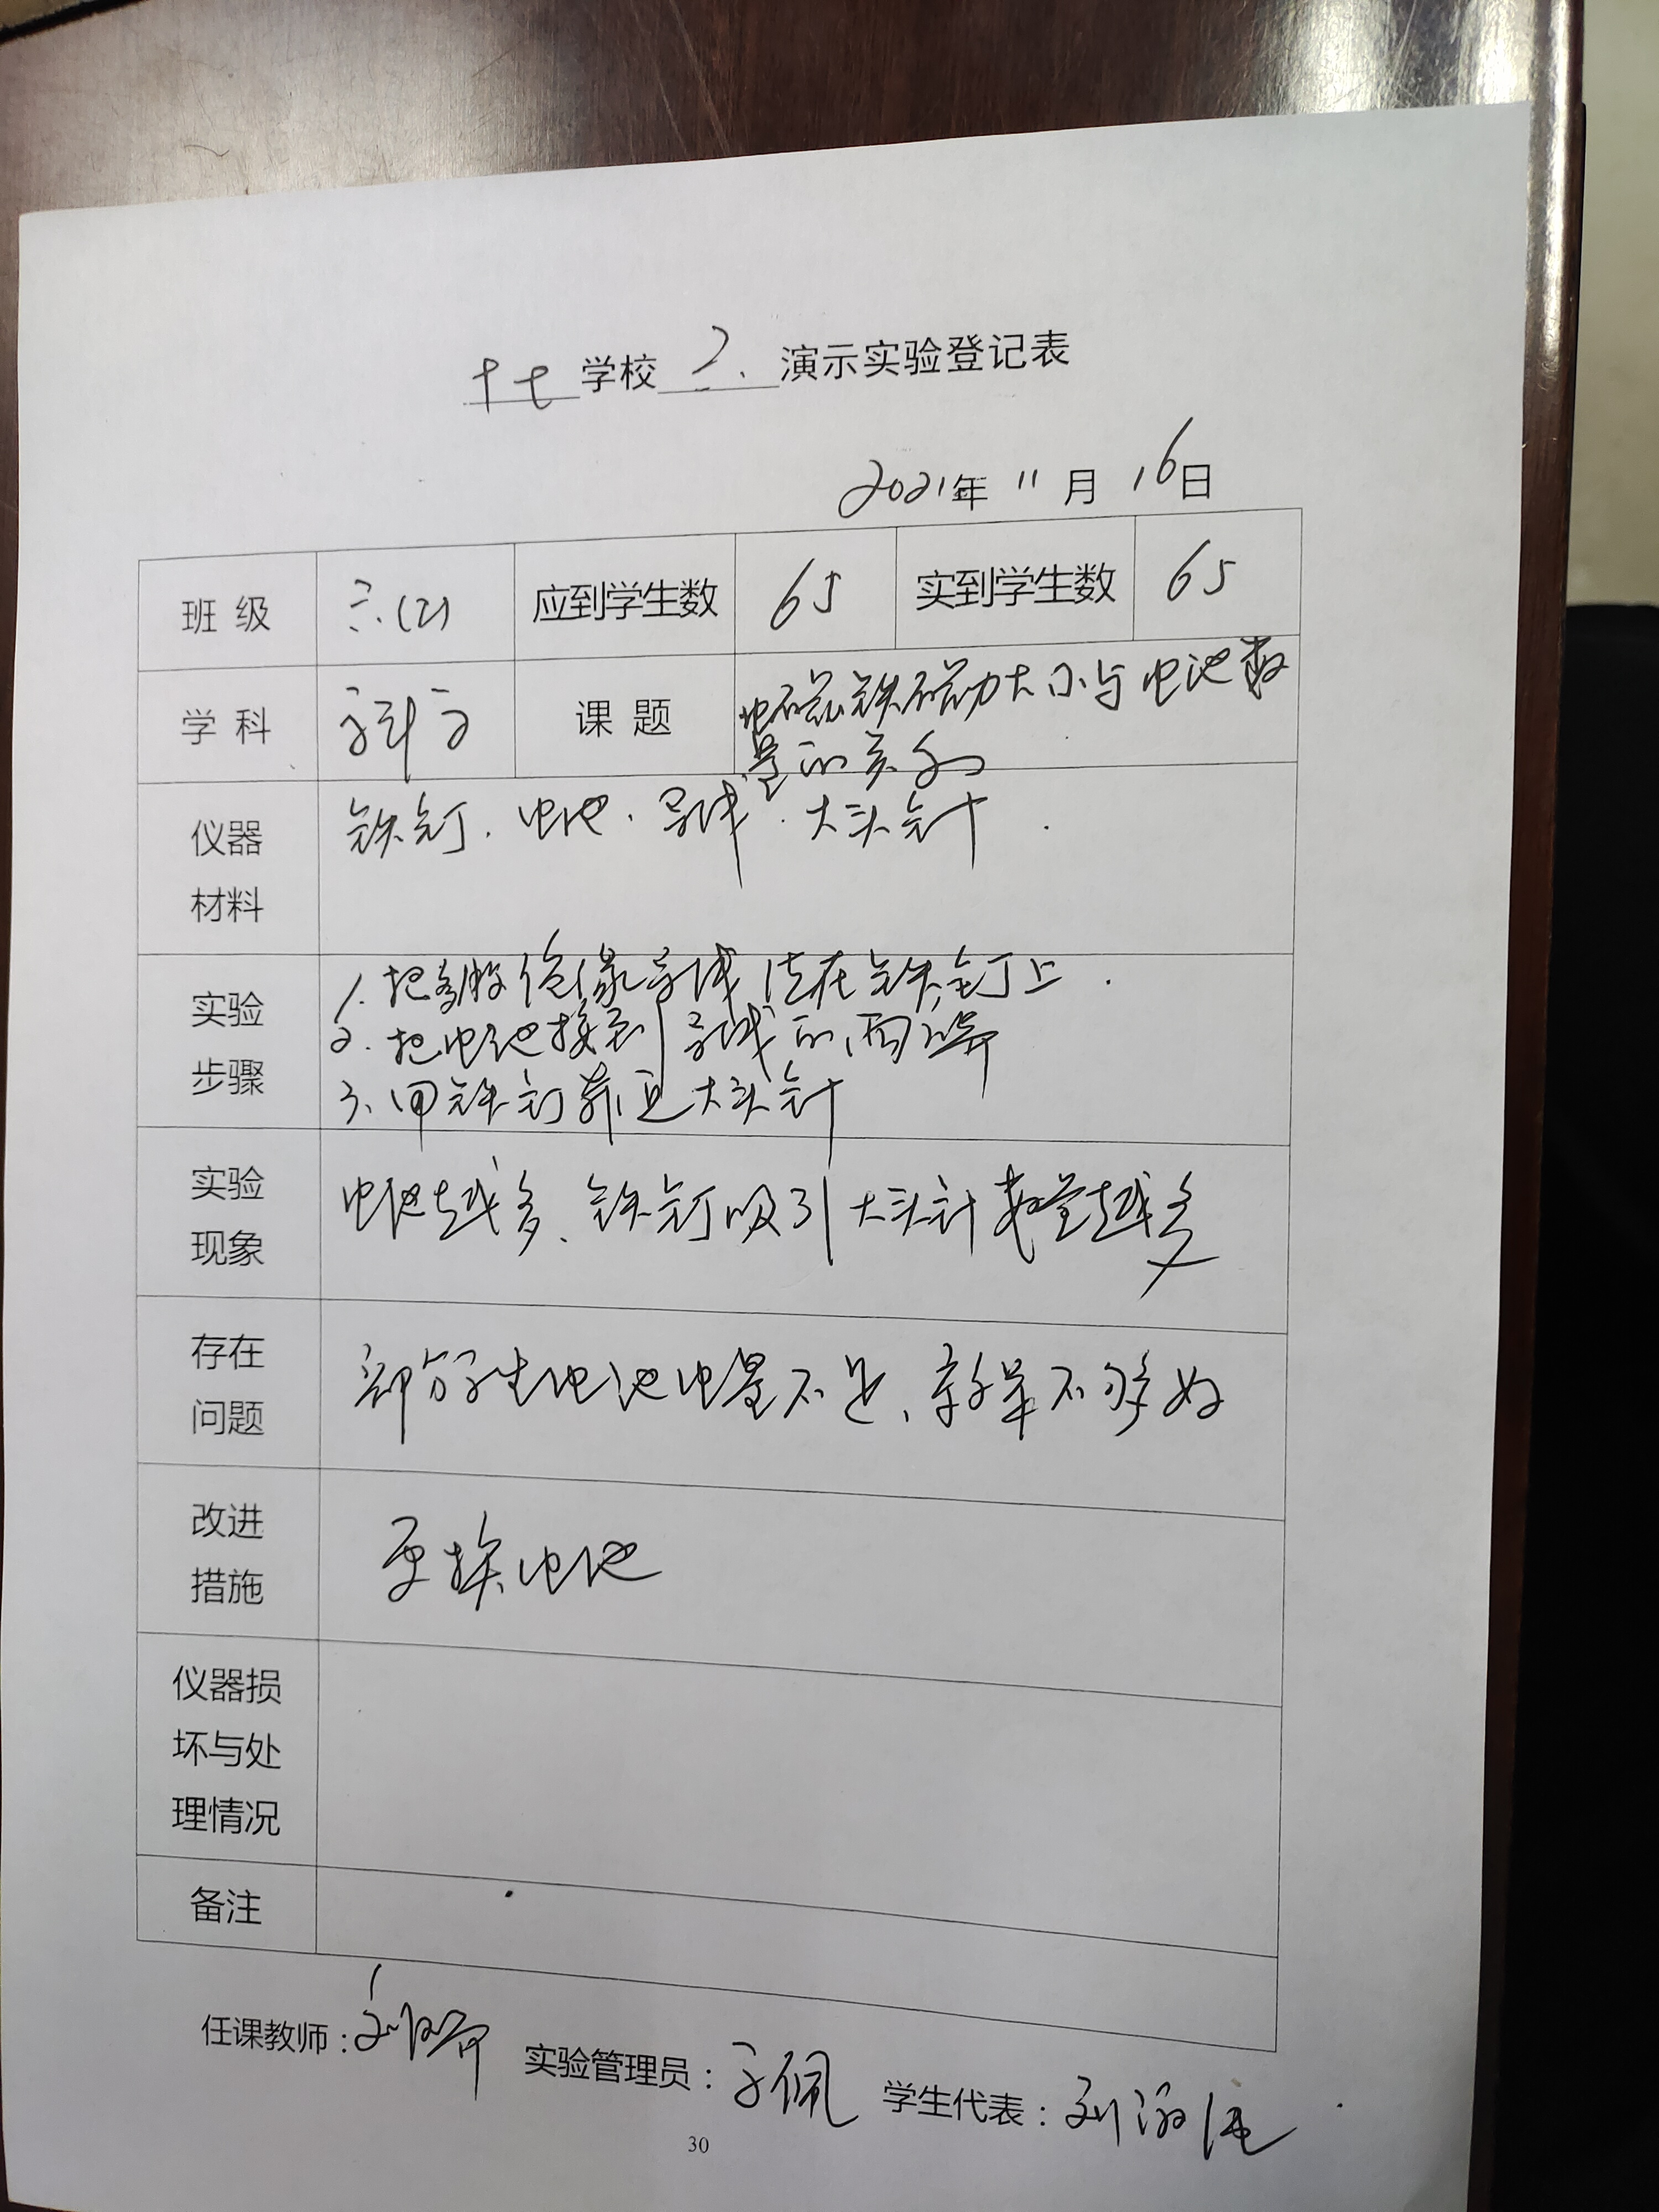 十七学校 2. 演示实验登记表
2021年 11 月 16日
班 级 六.(2) 应到学生数 65 实到学生数 65
学 科 科学 课 题 电磁铁磁力大小与电池数
量的关系
仪器
材料
铁钉. 电池. 导线. 大头针.
实验
步骤
1. 把 绝缘导线 在铁钉上.
2. 把电池接到导线的两端
3. 用铁钉靠近大头针
实验
现象
电池越多、铁钉吸引大头针数量越多
存在
问题
部分学生电池电量不足、效果不够好
改进
措施
更换电池
仪器损
坏与处
理情况
备注
任课教师: 实验管理员: 学生代表: 刘
30